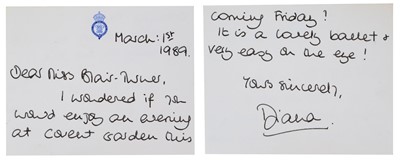 March: 1st
1989.
Dear Miss Blair-Turner,
I wondered if you
would enjoy an evening
at Covent Garden this
coming Friday!
It is a lovely ballet &
very easy on the eye!
Yours sincerely,
Diana.